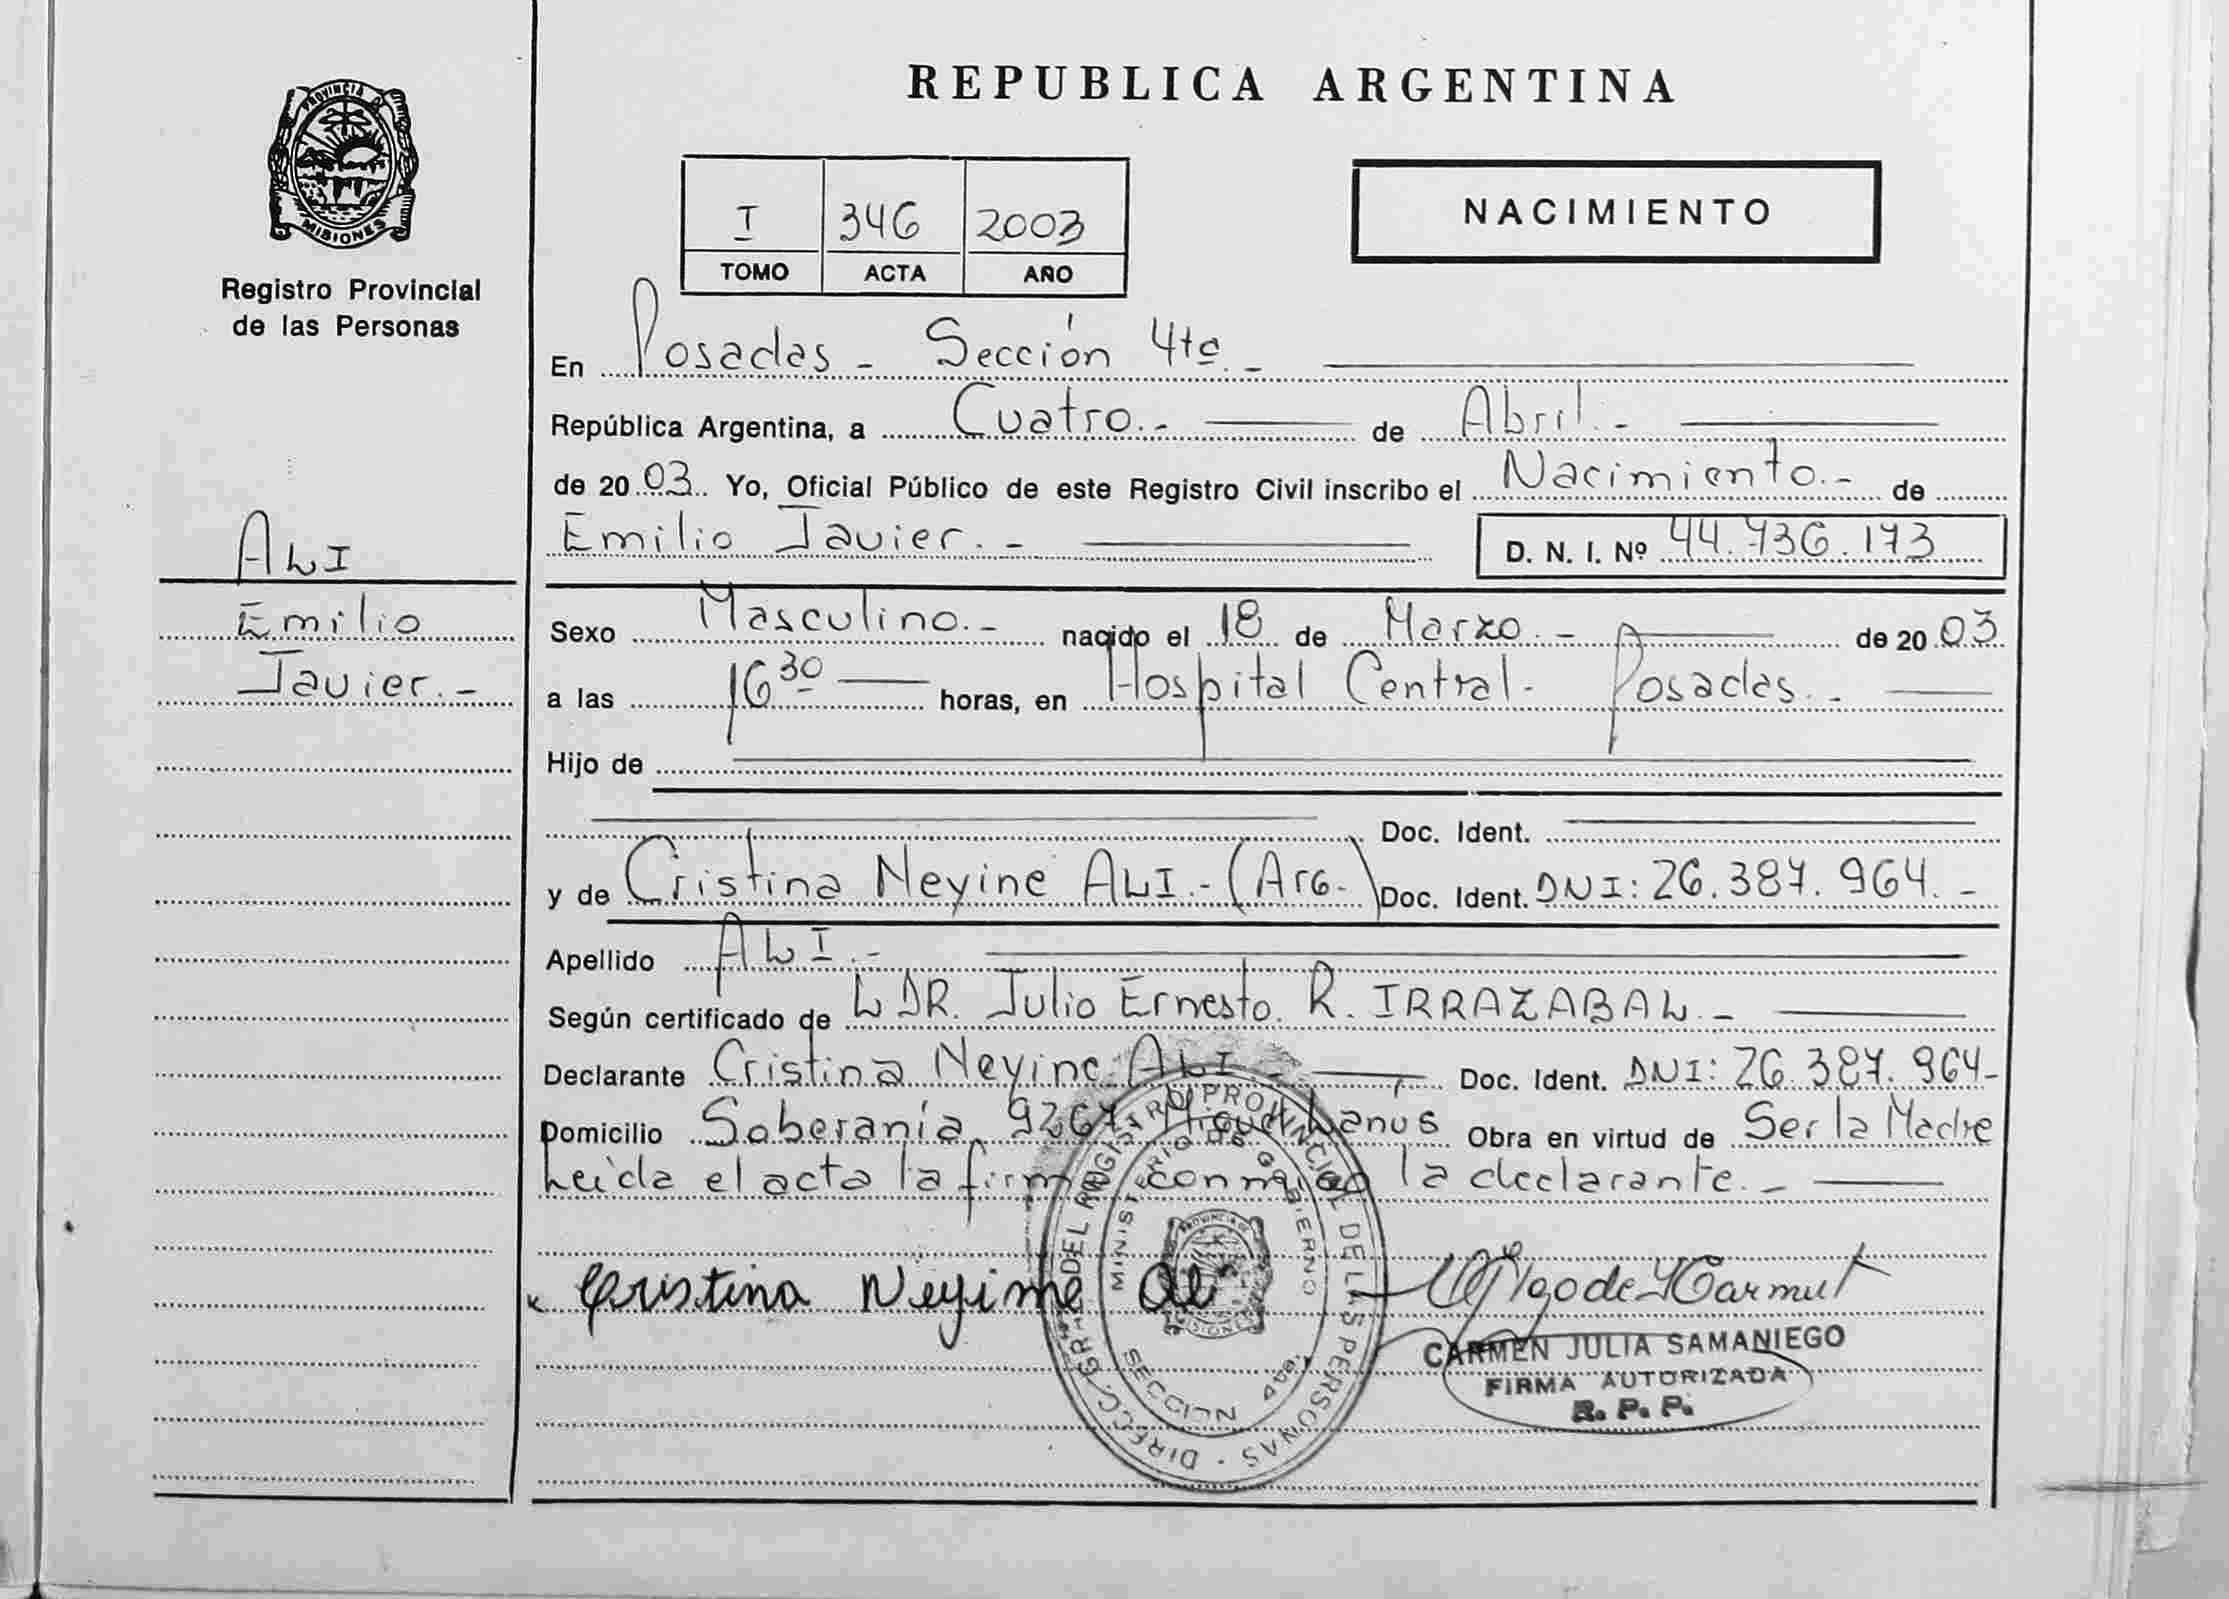 REPUBLICA ARGENTINA
PROVINCIA DE
MISIONES
Registro Provincial
de las Personas
I 346 2003
TOMO ACTA AÑO
NACIMIENTO
En Posadas - Sección 4ta. -
República Argentina, a Cuatro. - de Abril. -
de 20 03. Yo, Oficial Público de este Registro Civil inscribo el Nacimiento. - de
Emilio Javier. - D. N. I. Nº 44.736.173
ALI
Emilio
Javier. -
Sexo Masculino. - nacido el 18 de Marzo. - de 20 03
a las 16 30 horas, en Hospital Central - Posadas. -
Hijo de
Doc. Ident.
y de Cristina Neyine ALI. - (Arg.) Doc. Ident. DNI: 26.387.964. -
Apellido ALI. -
Según certificado de L DR. Julio Ernesto. R. IRRAZABAL. -
Declarante Cristina Neyine ALI. - Doc. Ident. DNI: 26.387.964-
Domicilio Soberanía 9267. Miguel Lanus Obra en virtud de Ser la Madre
Leida el acta la firma conmigo la declarante. -
Cristina Neyime Ali
CARMEN JULIA SAMANIEGO
FIRMA AUTORIZADA
R. P. P.
DIRECC. GRAL. DEL REGISTRO PROVINCIAL DE LAS PERSONAS
MINISTERIO DE GOBIERNO
PROVINCIA DE
MISIONES
SECCION